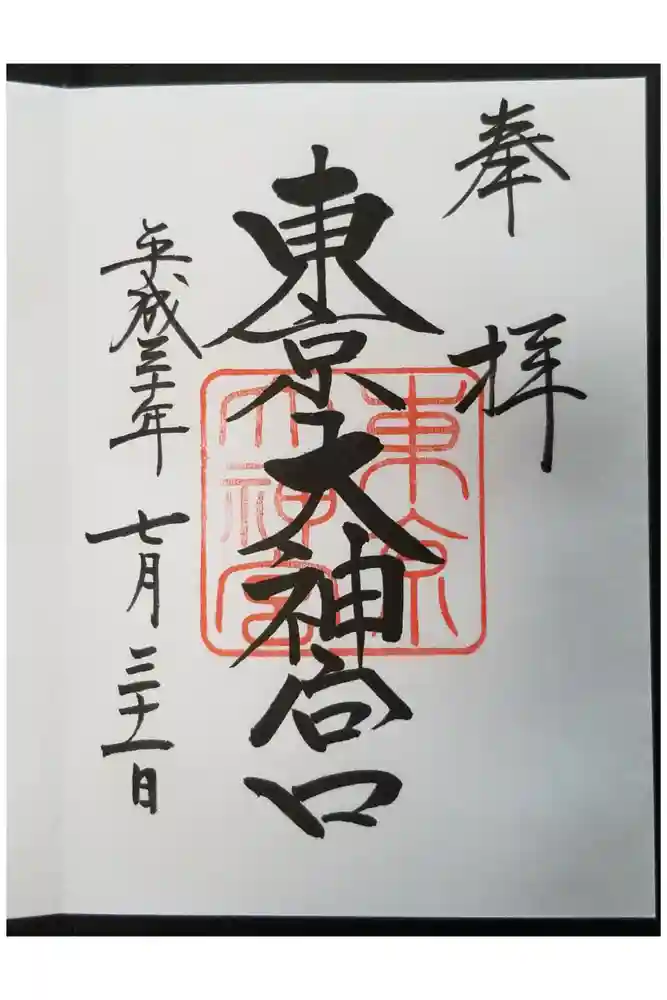 奉拝
東京大神宮
平成三十年七月三十一日
東京
大神宮